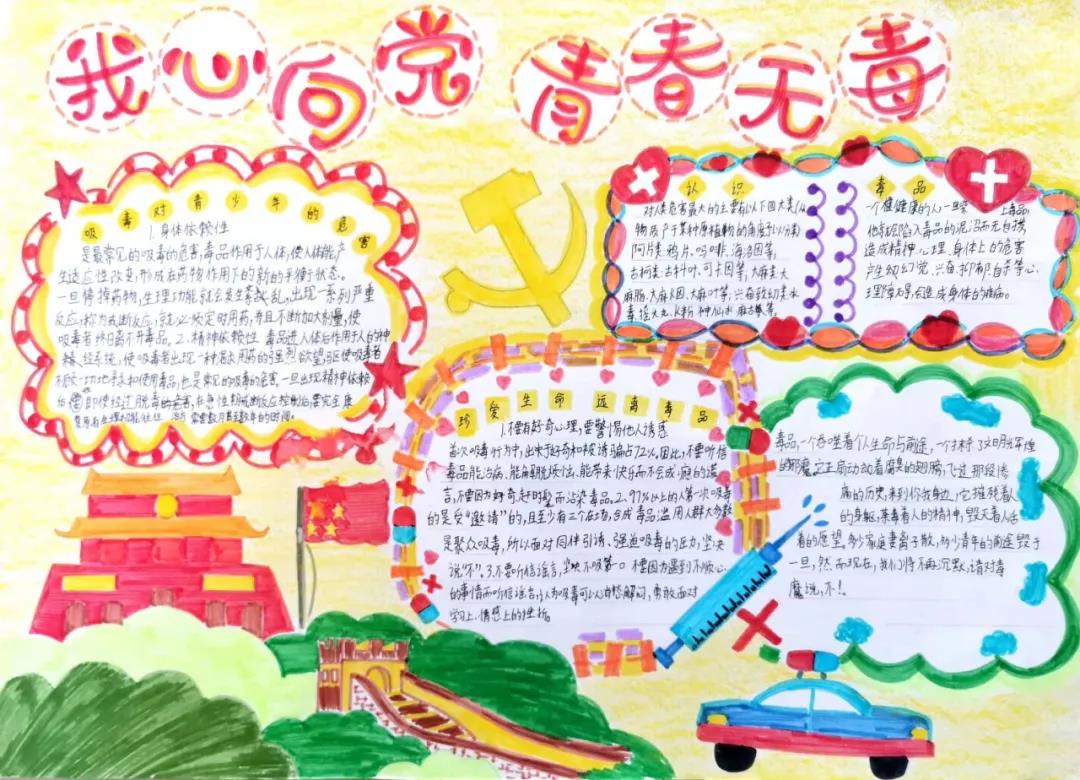 我心向党 青春无毒
吸毒对青少年的危害
1.身体依赖性
是最常见的吸毒的危害,毒品作用于人体,使人体能产
生适应性改变,形成在药物作用下的新的平衡状态。
一旦停掉药物,生理功能就会发生紊乱,出现一系列严重
反应,称为戒断反应,就必须定时用药,并且不断加大剂量,使
吸毒者终日离不开毒品。2.精神依赖性 毒品进入人体后作用于人的神
经系统,使吸毒者出现一种渴求用药的强烈欲望,驱使吸毒者
不顾一切地寻求和使用毒品,也是常见的吸毒的危害,一旦出现精神依赖
后,即使经过脱毒的 在急性期戒断反应控制后,要完全康
复原有生理功能往往 需要数月甚至数年的时间。
认识
毒品
对人类危害最大的主要有以下四大类
物质产于某种原植物的角度予以分类
阿片类:鸦片、吗啡、海洛因等,
古柯类:古柯叶、可卡因等,大麻类:大
麻脂、大麻烟、大麻叶等;兴奋致幻类:冰
毒、摇头丸、K粉
一个健康的人一旦 上毒品,
他就陷入毒品的泥沼而无自拔,
造成精神、心理、身体上的危害
产生幻觉,兴奋、抑郁、自杀等心
理障碍,会造成身体的疾病。
珍爱生命 远离毒品
1.不要有好奇心理,要警惕他人诱惑
首次吸毒行为中,出来于好奇和被诱骗占72%,因此,不要听信
毒品能治病,能解脱烦恼,能带来快乐而不会成瘾的谎
言,不要因为好奇、赶时髦而沾染毒品。2、97%以上的人第一次吸毒
的是受“邀请”的,且至少有三个在场,合成毒品滥用人群大多数
是聚众吸毒,所以面对同伴引诱、强迫吸毒的压力,坚决
说“不”。3.不要听信谣言,坚决不吸第一口 不要因为遇到不顺心
的事情而听信谣言,认为吸毒可以消愁解闷,勇敢面对
学习上、情感上的挫折。
毒品,一个吞噬着个人生命与前途,一个扑杀了文明与辉煌
的邪魔,它正扇动动着腐臭的翅膀,飞过那段惨
痛的历史,来到你我身边,它摧残着人
的身躯,荼毒着人的精神,毁灭着人活
着的愿望。多少家庭妻离子散,多少青年的前途毁于
一旦,然而现在,我们将不再沉默,请对毒
魔说,不!。